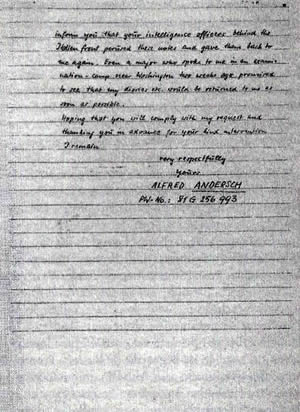 inform you that your intelligence officers behind the
Italian front perused these notes and gave them back to
me again. Even a major who spoke to me in an exami-
nation-camp near Washington two weeks ago, promised
to see that my diaries etc. would be returned to me as
soon as possible.
Hoping that you will comply with my request and
thanking you in advance for your kind intervention
I remain
very respectfully
yours
ALFRED ANDERSCH
PW-No.: 81 G 256 993